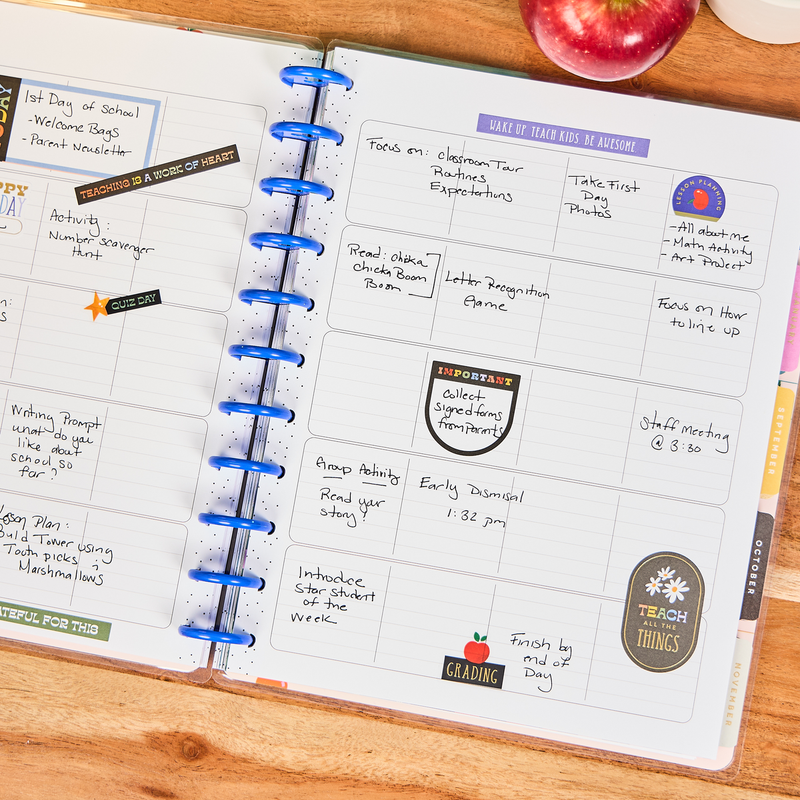 1st Day of School
-Welcome Bags
-Parent Newsletter
TEACHING IS A WORK OF HEART
Activity:
Number scavenger
Hunt
QUIZ DAY
Writing Prompt
what do you
like about
school so
far?
Plan:
Tower using
Tooth picks &
Marshmallows
FOR THIS
WAKE UP TEACH KIDS BE AWESOME
Focus on: classroom Tour
Routines
Expectations
Take First
Day
Photos
LESSON PLANNING
-All about me
-Math Activity
-Art Project
Read: chicka
chicka Boom
Boom
Letter Recognition
Game
Focus on How
to line up
IMPORTANT
collect
signed forms
from parents
Staff meeting
@ 3:30
Group Activity
Read your
story!
Early Dismisal
1:32 pm
Introduce
star student
of the
week
GRADING
Finish by
end of
Day
TEACH
ALL THE
THINGS
SEPTEMBER
OCTOBER
NOVEMBER